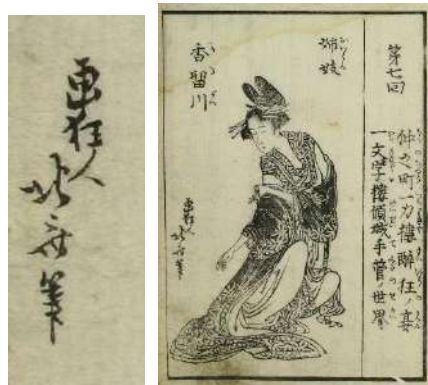 画狂人
北斎筆
第七回
仲之町一力樓醉狂ノ宴
一文字樓傾城手管ノ世界
姉妓
香留川
画狂人
北斎筆